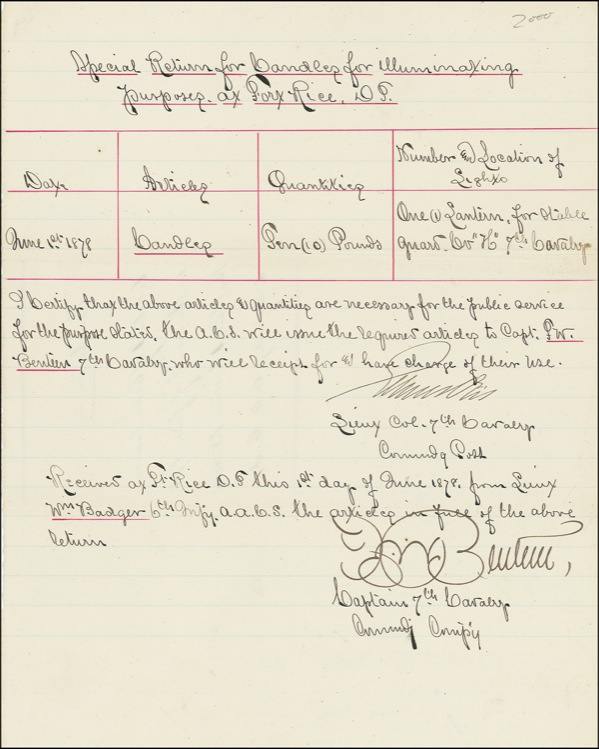 2000
Special Return for Candles for illuminating
purposes at Fort Rice, D.T.
Date
Articles
Quantities
Number & Location of
Lights
June 1st 1878
Candles
Ten (10) Pounds
One (1) Lantern, for Stable
guard. Co "H" 7th Cavalry
I Certify that the above articles & quantities are necessary for the public service
for the purpose stated. The A.C.S. will issue the required articles to Capt. F.W.
Benteen 7th Cavalry, who will receipt for & have charge of their use.
Lieut Col. 7th Cavalry
Comundg Post
Received at Ft. Rice D.T this 1st day of June 1878, from Lieut
Wm Badger 6th Infy. A.A.C.S. the articles in full of the above
return
Benteen,
Captain 7th Cavalry
Comundg Compy